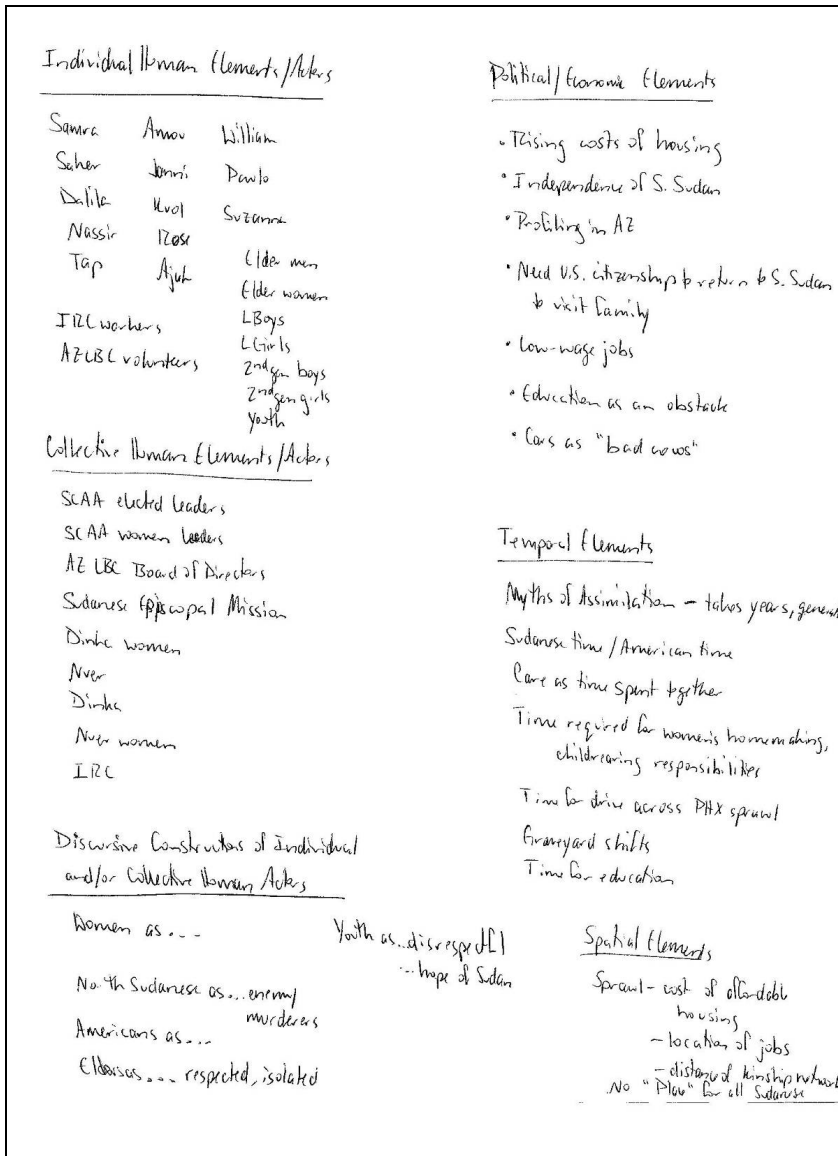 Individual Human Elements/Actors
Samra Amou William
Saher Jonni Paulo
Dalila Kuol Suzanna
Nassir Rose
Tap Ajuh Elder men
Elder women
IRC workers LBoys
AZLBC volunteers LGirls
2nd gen boys
2nd gen girls
Youth
Collective Human Elements/Actors
SCAA elected leaders
SCAA women leaders
AZ LBC Board of Directors
Sudanese Episcopal Mission
Dinka women
Nuer
Dinka
Nuer women
IRC
Discursive Constructions of Individual
and/or Collective Human Actors
Women as...
North Sudanese as...enemy
murderers
Americans as...
Elders as... respected, isolated
Youth as...disrespectful
...hope of Sudan
Political/Economic Elements
• Rising costs of housing
• Independence of S. Sudan
• Profiling in AZ
• Need U.S. citizenship to return to S. Sudan
to visit family
• Low-wage jobs
• Education as an obstacle
• Cars as "bad cows"
Temporal Elements
Myths of Assimilation – takes years, generat
Sudanese time/American time
Care as time spent together
Time required for women's homemaking,
childrearing responsibilities
Time to drive across PHX sprawl
Graveyard shifts
Time for education
Spatial Elements
Sprawl – cost of affordabl
housing
– location of jobs
– distance of kinship network
No "Place" for all Sudanese